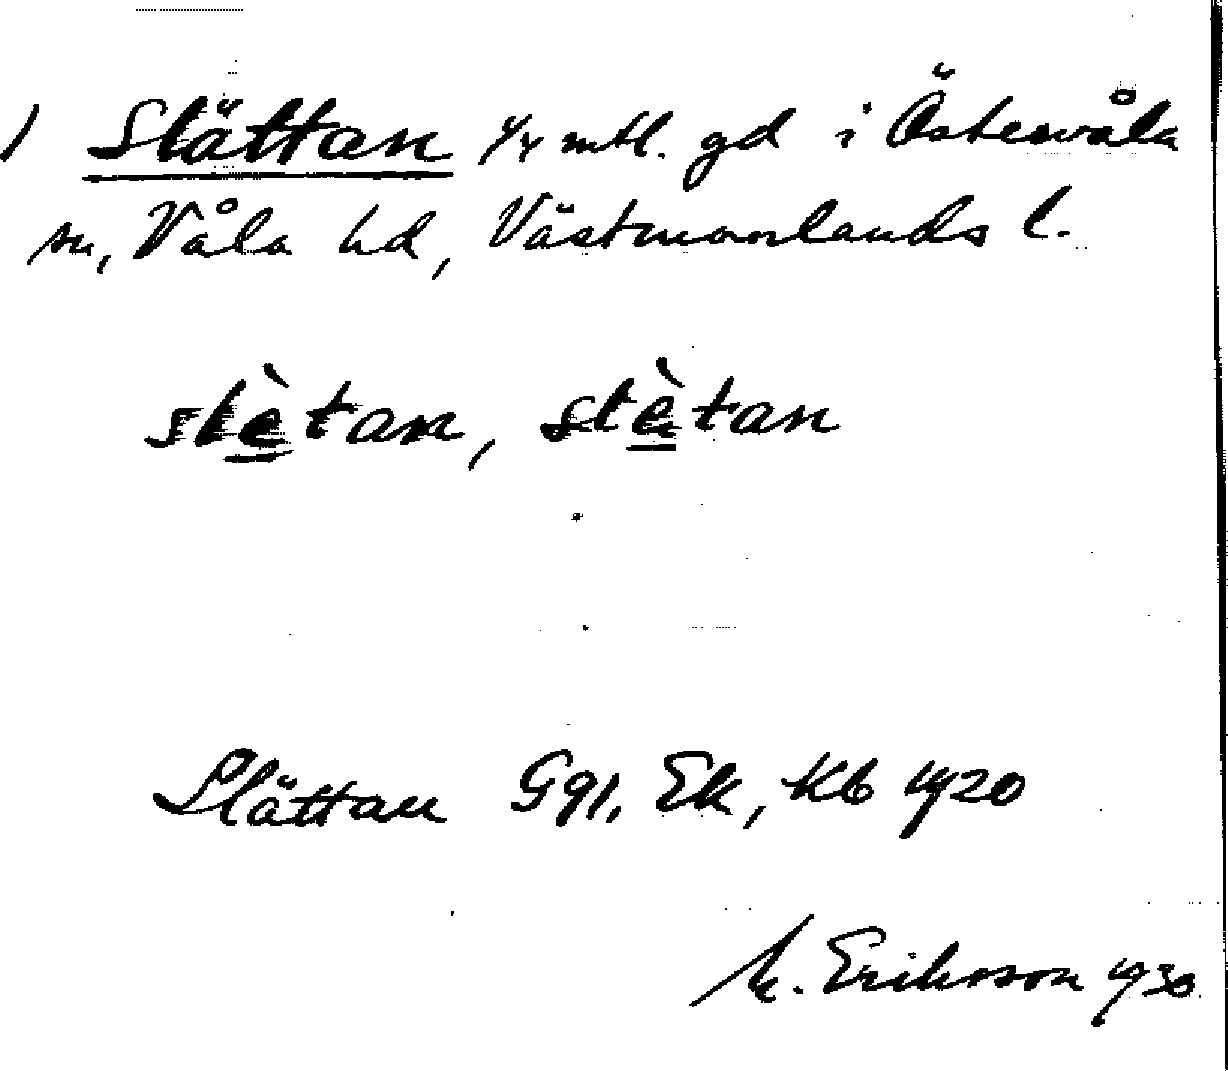 1 Slättan 1/4 mtl. gd i Östervåla
sn, Våla hd, Västmanlands l.
slètan, slètan
Slättan Ggl, Ek, Kb 1920
M. Eriksson 1930